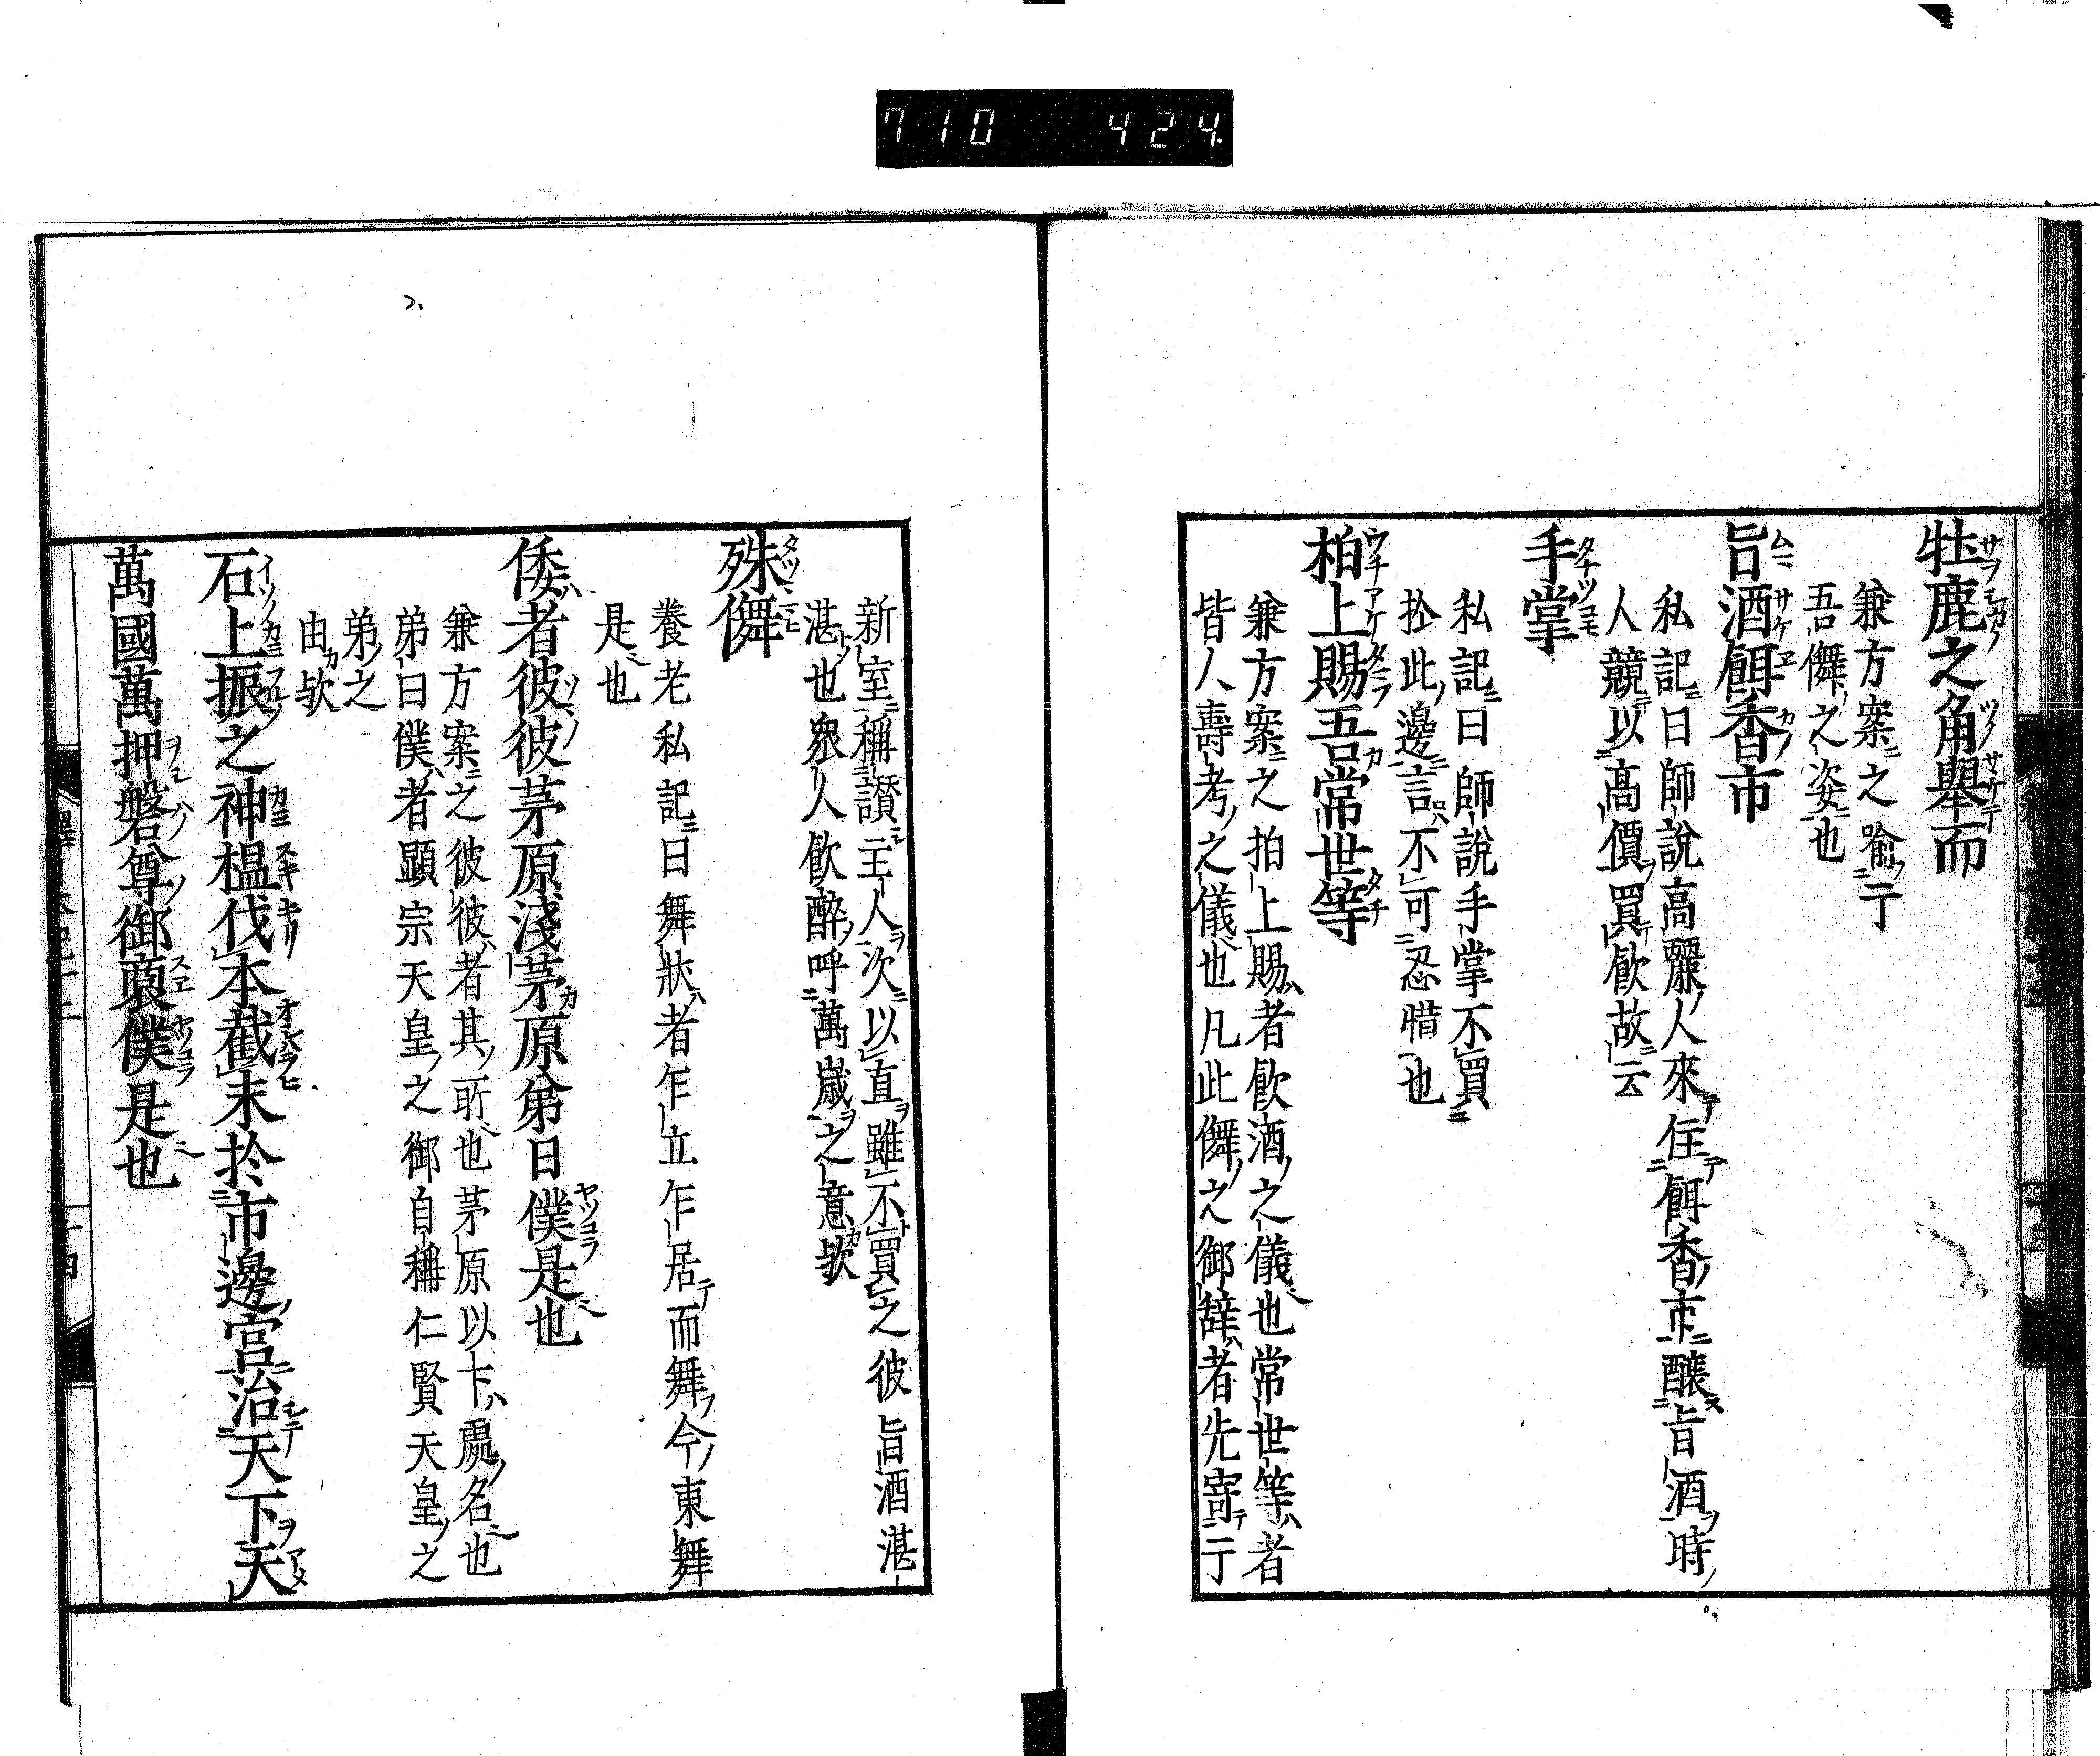 710 424
牡鹿之角舉而
兼方案之喩于
吾儛之姿也
旨酒餌香市
私記曰師說高麗人來住餌香市釀旨酒時
人競以高價買飮故云
手掌
私記曰師說手掌不買
於此邊言不可忍惜也
柏上賜吾常世等
兼方案之拍上賜者飮酒之儀也常世等者
皆人壽考之儀也凡此儛之御辭者先寄于
新室稱讃主人次以直雖不買之彼旨酒湛
湛也衆人飮醉呼萬歲之意歟
殊儛
養老私記曰舞狀者乍立乍居而舞今東舞
是也
倭者彼彼茅原淺茅原弟曰僕是也
兼方案之彼彼者其所也茅原以下處名也
弟曰僕者顯宗天皇之御自稱仁賢天皇之
弟之
由歟
石上振之神榲伐本截末於市邊宮治天下天
萬國萬押磐尊御裔僕是也